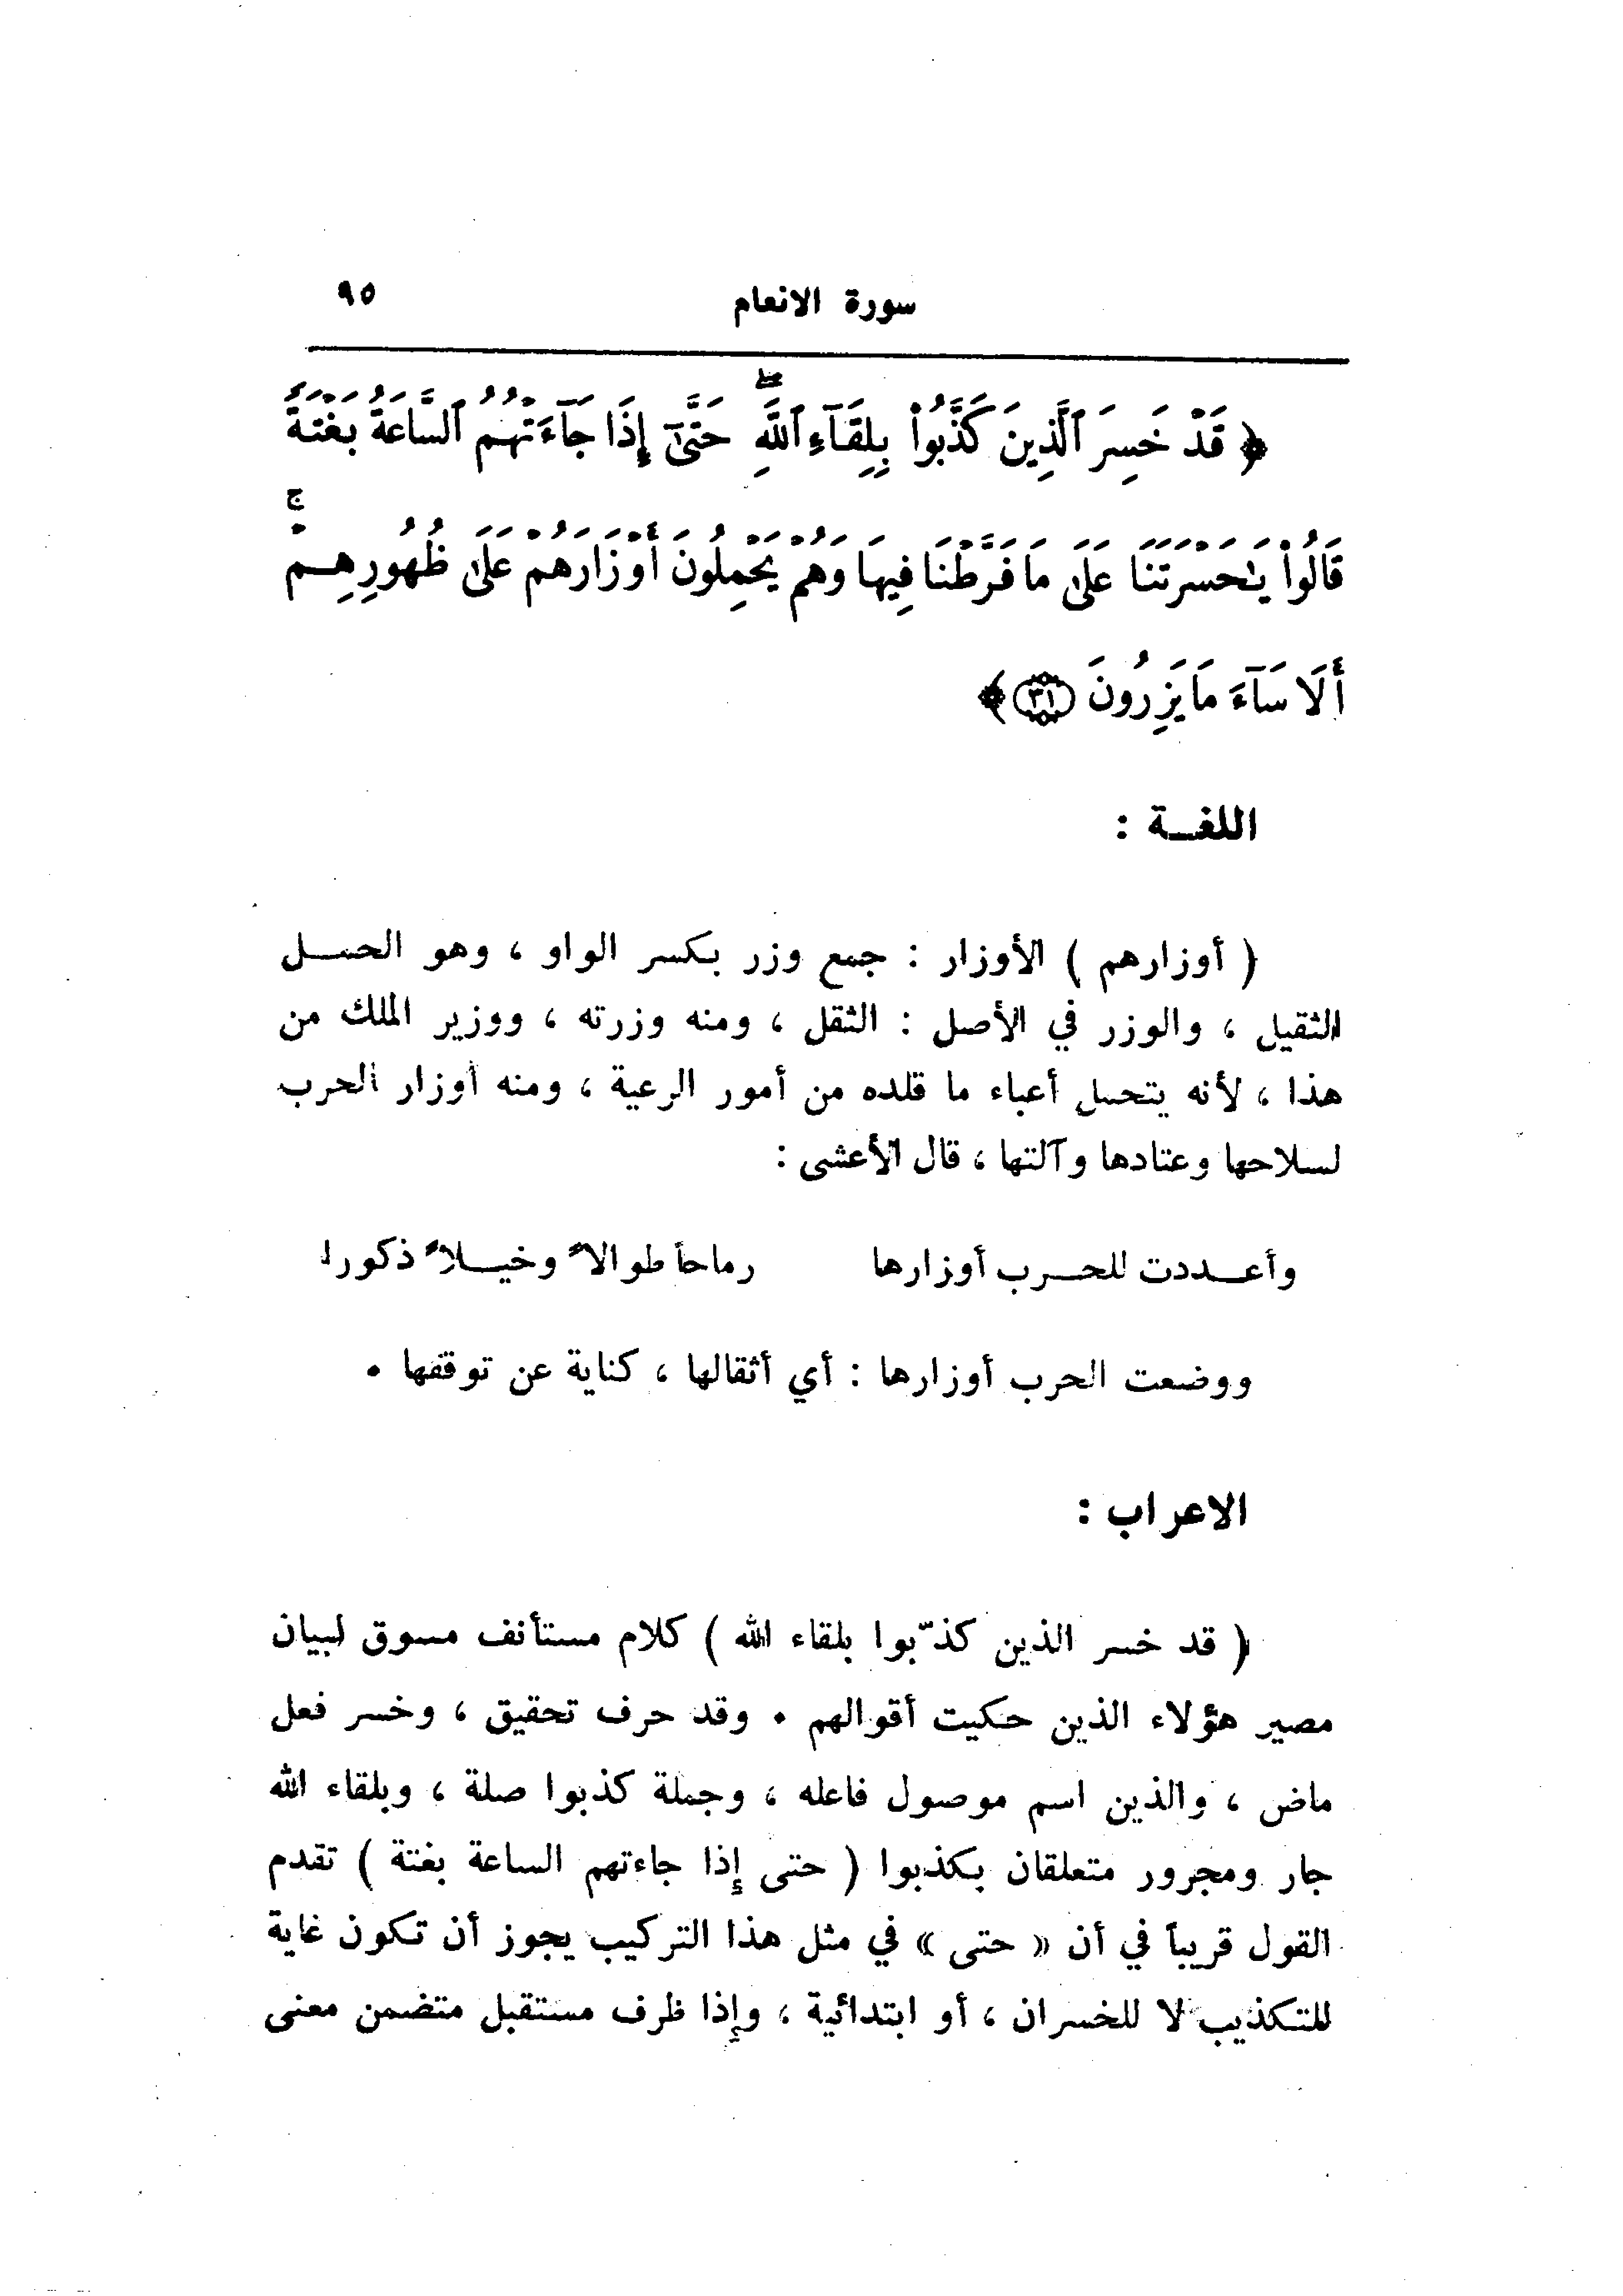 سورة الانعام ٩٥
﴿ قَدْ خَسِرَ ٱلَّذِينَ كَذَّبُوا۟ بِلِقَآءِ ٱللَّهِ ۖ حَتَّىٰٓ إِذَا جَآءَتْهُمُ ٱلسَّاعَةُ بَغْتَةً
قَالُوا۟ يَـٰحَسْرَتَنَا عَلَىٰ مَا فَرَّطْنَا فِيهَا وَهُمْ يَحْمِلُونَ أَوْزَارَهُمْ عَلَىٰ ظُهُورِهِـمْ ۚ
أَلَا سَآءَ مَا يَزِرُونَ ٣١ ﴾
اللغـة :
( أوزارهم ) الأوزار : جمع وزر بكسر الواو ، وهو الحمــل
الثقيل ، والوزر في الأصل : الثقل ، ومنه وزرته ، ووزير الملك من
هذا ، لأنه يتحمل أعباء ما قلده من أمور الرعية ، ومنه أوزار الحرب
لسلاحها وعتادها وآلتها ، قال الأعشى :
وأعــددت للحــرب أوزارها رماحاً طوالاً وخيــلاً ذكورا
ووضعت الحرب أوزارها : أي أثقالها ، كناية عن توقفها .
الاعراب :
( قد خسر الذين كذّبوا بلقاء الله ) كلام مستأنف مسوق لبيان
مصير هؤلاء الذين حكيت أقوالهم . وقد حرف تحقيق ، وخسر فعل
ماض ، والذين اسم موصول فاعله ، وجملة كذبوا صلة ، وبلقاء الله
جار ومجرور متعلقان بكذبوا ( حتى إذا جاءتهم الساعة بغتة ) تقدم
القول قريباً في أن « حتى » في مثل هذا التركيب يجوز أن تكون غاية
للتكذيب لا للخسران ، أو ابتدائية ، وإذا ظرف مستقبل متضمن معنى